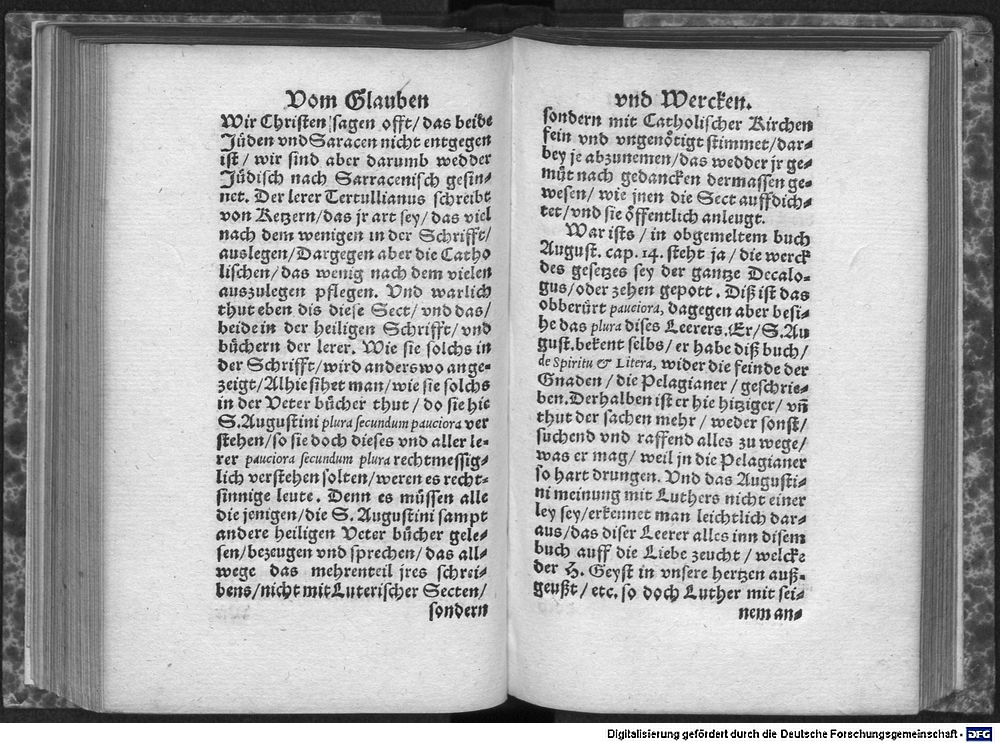 Vom Glauben
Wir Christen sagen offt/ das beide
Jüden vnd Saracen nicht entgegen
ist/ wir sind aber darumb wedder
Jüdisch nach Sarracenisch gesin⸗
net. Der lerer Tertullianus schreibt
von Ketzern/ das jr art sey/ das viel
nach dem wenigen in der Schrifft/
auslegen/ Dargegen aber die Catho
lischen/ das wenig nach dem vielen
auszulegen pflegen. Vnd warlich
thut eben dis diese Sect/ vnd das/
beide in der heiligen Schrifft/ vnd
büchern der lerer. Wie sie solchs in
der Schrifft/ wird anderswo ange⸗
zeigt/ Alhie sihet man/ wie sie solchs
in der Veter bücher thut/ do sie hie
S. Augustini plura secundum pauciora ver
stehen/ so sie doch dieses vnd aller le⸗
rer pauciora secundum plura rechtmessig⸗
lich verstehen solten/ weren es recht⸗
sinnige leute. Denn es müssen alle
die jenigen/ die S. Augustini sampt
andere heiligen Veter bücher gele⸗
sen/ bezeugen vnd sprechen/ das all⸗
wege das mehrenteil jres schrei⸗
bens/ nicht mit Luterischer Secten/
sondern
vnd Wercken.
sondern mit Catholischer Kirchen
fein vnd vngenötigt stimmet/ dar⸗
bey je abzunemen/ das wedder jr ge⸗
müt nach gedancken dermassen ge⸗
wesen/ wie jnen die Sect auffdich⸗
tet/ vnd sie öffentlich anleugt.
War ists/ in obgemeltem buch
August. cap. 14. steht ja/ die werck
des gesetzes sey der gantze Decalo⸗
gus/ oder zehen gepott. Diß ist das
obberürt pauciora, dagegen aber besi⸗
he das plura dises Leerers. Er/ S. Au
gust. bekent selbs/ er habe diß buch/
de Spiritu & Litera, wider die feinde der
Gnaden/ die Pelagianer/ geschrie⸗
ben. Derhalben ist er hie hitziger/ vñ
thut der sachen mehr/ weder sonst/
suchend vnd raffend alles zu wege/
was er mag/ weil jn die Pelagianer
so hart drungen. Vnd das Augusti⸗
ni meinung mit Luthers nicht einer
ley sey/ erkennet man leichtlich dar⸗
aus/ das diser Leerer alles inn disem
buch auff die Liebe zeucht/ welcke
der H. Geyst in vnsere hertzen auß⸗
geußt/ etc. so doch Luther mit sei⸗
nem an⸗
Digitalisierung gefördert durch die Deutsche Forschungsgemeinschaft - DFG